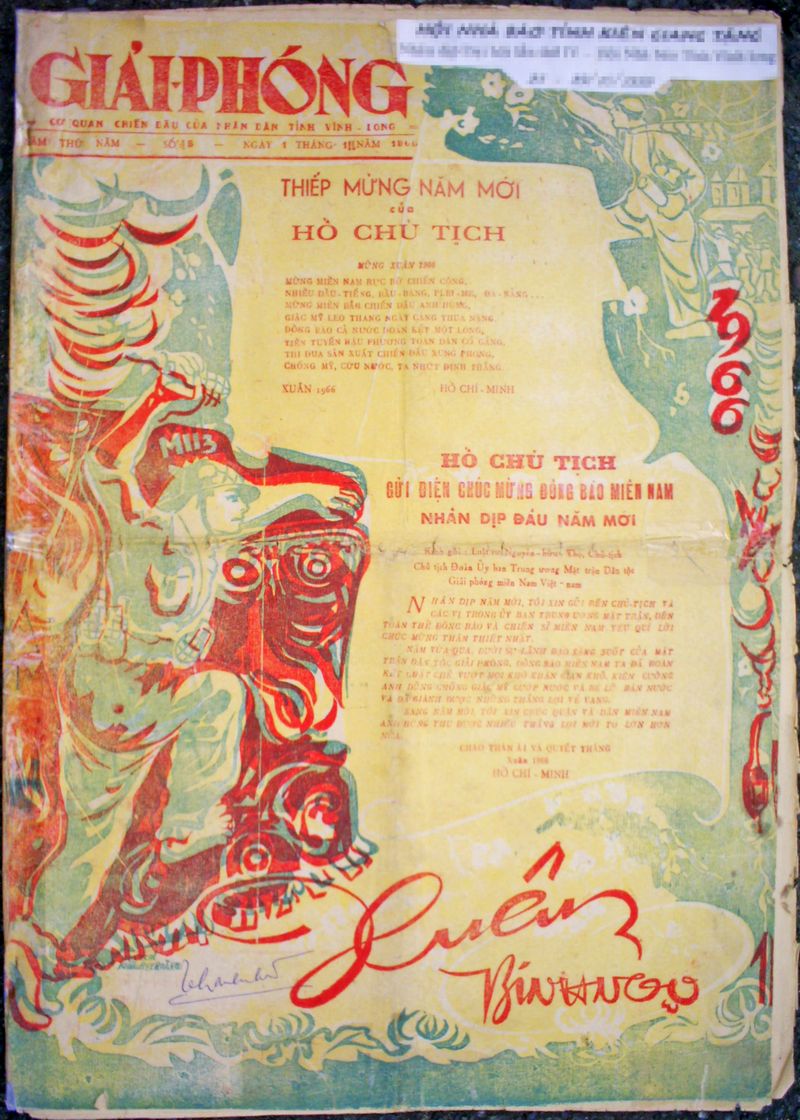 HỘI NHÀ BÁO TỈNH KIÊN GIANG TẶNG
GIẢI-PHÓNG
CƠ QUAN CHIẾN ĐẤU CỦA NHÂN DÂN TỈNH VĨNH - LONG
NĂM THỨ NĂM — SỐ — NGÀY 1 THÁNG NĂM
THIẾP MỪNG NĂM MỚI
của
HỒ CHỦ TỊCH
MỪNG XUÂN 1966
MỪNG MIỀN NAM RỰC RỠ CHIẾN CÔNG,
NHIỀU DẦU - TIẾNG, BÀU - BÀNG, PLEI - ME, ĐÀ - NẴNG...
MỪNG MIỀN BẮC CHIẾN ĐẤU ANH HÙNG,
GIẶC MỸ LEO THANG NGÀY CÀNG THUA NẶNG.
ĐỒNG BÀO CẢ NƯỚC ĐOÀN KẾT MỘT LÒNG,
TIỀN TUYẾN HẬU PHƯƠNG TOÀN DÂN CỐ GẮNG,
THI ĐUA SẢN XUẤT CHIẾN ĐẤU XUNG PHONG,
CHỐNG MỸ, CỨU NƯỚC, TA NHỨT ĐỊNH THẮNG.
XUÂN 1966 HỒ CHÍ - MINH
1966
M113
HỒ CHỦ TỊCH
GỬI ĐIỆN CHÚC MỪNG ĐỒNG BÀO MIỀN NAM
NHÂN DỊP ĐẦU NĂM MỚI
Kính gửi : Luật sư Nguyễn - Hữu - Thọ, Chủ tịch
Chủ tịch Đoàn Ủy ban Trung ương Mặt trận Dân tộc
Giải phóng miền Nam Việt - nam
NHÂN DỊP NĂM MỚI, TÔI XIN GỬI ĐẾN CHỦ-TỊCH VÀ
CÁC VỊ TRONG ỦY BAN TRUNG ƯƠNG MẶT TRẬN, ĐẾN
TOÀN THỂ ĐỒNG BÀO VÀ CHIẾN SĨ MIỀN NAM YÊU QUÍ LỜI
CHÚC MỪNG THÂN THIẾT NHẤT.
NĂM VỪA QUA, DƯỚI SỰ LÃNH ĐẠO SÁNG SUỐT CỦA MẶT
TRẬN DÂN TỘC GIẢI PHÓNG, ĐỒNG BÀO MIỀN NAM TA ĐÃ ĐOÀN
KẾT CHẶT CHẼ VƯỢT MỌI KHÓ KHĂN GIAN KHỔ, KIÊN CƯỜNG
ANH DŨNG CHỐNG GIẶC MỸ CƯỚP NƯỚC VÀ BÈ LŨ BÁN NƯỚC
VÀ ĐÃ GIÀNH ĐƯỢC NHỮNG THẮNG LỢI VẺ VANG.
SANG NĂM MỚI, TÔI XIN CHÚC QUÂN VÀ DÂN MIỀN NAM
ANH HÙNG THU ĐƯỢC NHIỀU THẮNG LỢI MỚI TO LỚN HƠN
NỮA.
CHÀO THÂN ÁI VÀ QUYẾT THẮNG
Xuân 1966
HỒ CHÍ - MINH
Xuân
BÍNH NGỌ